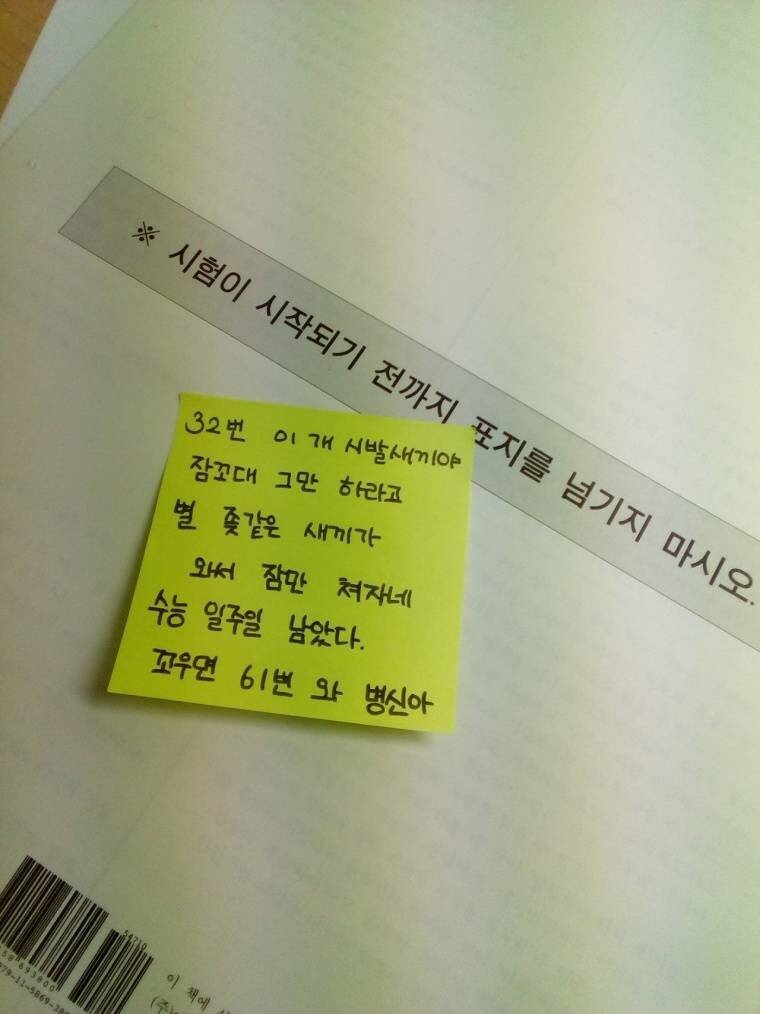 ※ 시험이 시작되기 전까지 표지를 넘기지 마시오.
32번 이 개 시발새끼야
잠꼬대 그만 하라고
별 좆같은 새끼가
와서 잠만 쳐자네
수능 일주일 남았다.
꼬우면 61번 와 병신아
54710
이 책에
(주)